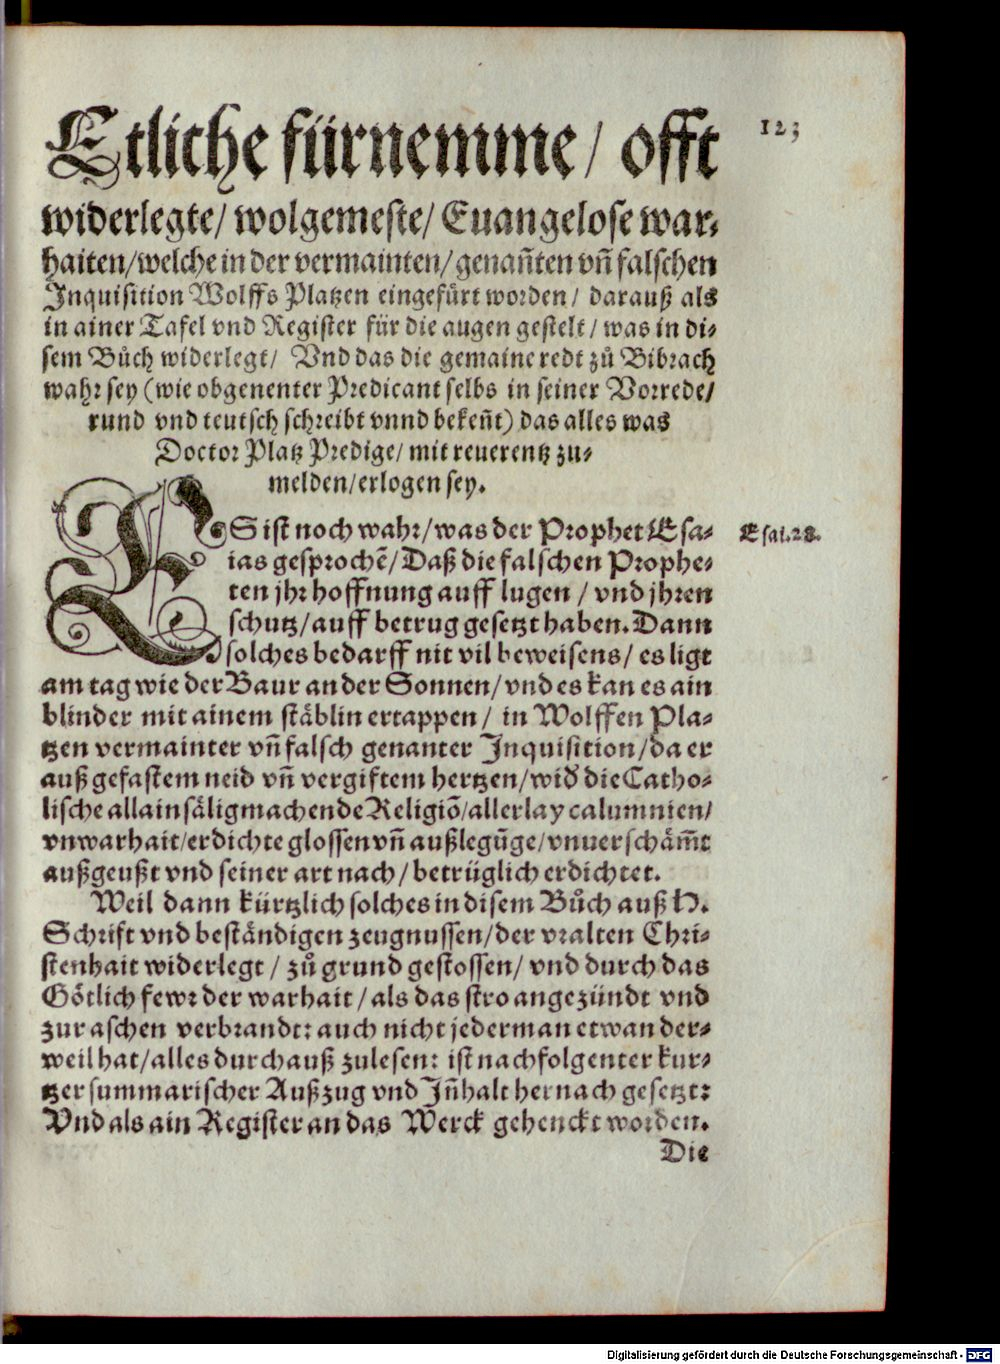 Etliche fürnemme / offt
123
widerlegte / wolgemeste / Euangelose war-
haiten / welche in der vermainten / genañten vñ falschen
Inquisition Wolffs Platzen eingefürt worden / darauß als
in ainer Tafel vnd Register für die augen gestelt / was in di-
sem Bůch widerlegt / Vnd das die gemaine redt zů Bibrach
wahr sey (wie obgenenter Predicant selbs in seiner Vorrede /
rund vnd teutsch schreibt vnnd bekeñt) das alles was
Doctor Platz Predige / mit reuerentz zu-
melden / erlogen sey.
ES ist noch wahr / was der Prophet Esa-
Esai. 28.
ias gesprochẽ / Daß die falschen Prophe-
ten jhr hoffnung auff lugen / vnd jhren
schutz / auff betrug gesetzt haben. Dann
solches bedarff nit vil beweisens / es ligt
am tag wie der Baur an der Sonnen / vnd es kan es ain
blinder mit ainem stäblin ertappen / in Wolffen Pla-
tzen vermainter vñ falsch genanter Inquisition / da er
auß gefastem neid vñ vergiftem hertzen / wid' die Catho-
lische allain säligmachende Religiõ / allerlay calumnien /
vnwarhait / erdichte glossen vñ außlegũge / vnuerschäm̃t
außgeußt vnd seiner art nach / betrüglich erdichtet.
Weil dann kürtzlich solches in disem Bůch auß H.
Schrift vnd beständigen zeugnussen / der vralten Chri-
stenhait widerlegt / zů grund gestossen / vnd durch das
Götlich fewr der warhait / als das stro angezündt vnd
zur aschen verbrandt: auch nicht jederman etwan der-
weil hat / alles durchauß zulesen: ist nachfolgenter kur-
tzer summarischer Außzug vnd Jñhalt hernach gesetzt:
Vnd als ain Register an das Werck gehenckt worden.
Die
Digitalisierung gefördert durch die Deutsche Forschungsgemeinschaft - DFG